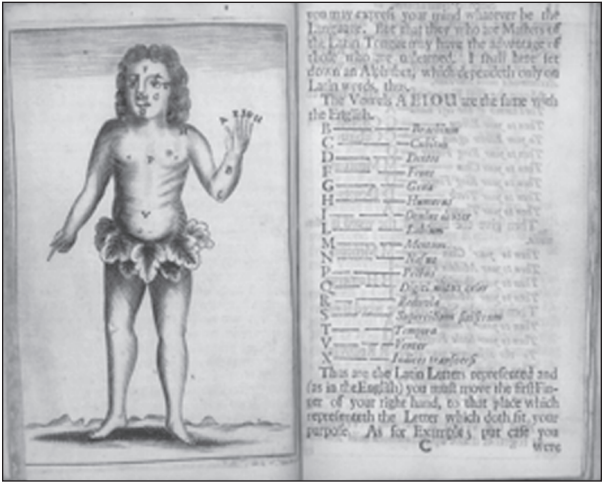 you may express your mind whatever be the
Language. But that they who are Masters of
the Latin Tongue may have the advantage of
those who are unlearned. I shall here set
down an Alphabet, which dependeth only on
Latin words, thus.
The Vowels A E I O U are the same with
the English.
B Brachium
C Cubitus
D Dentes
F Frons
G Gena
H Humerus
I
L Labium
M Mentum
N Nasus
P Pectus
Q Digiti
R
S Supercilium sinistrum
T Tempora
V Venter
X Indices transversi
Thus are the Latin Letters represented and
(as in the English) you must move the first Fin-
ger of your right hand, to that place which
representeth the Letter which doth fit your
purpose. As for Example; put case you
C were
A E I O U
H
P
B
V